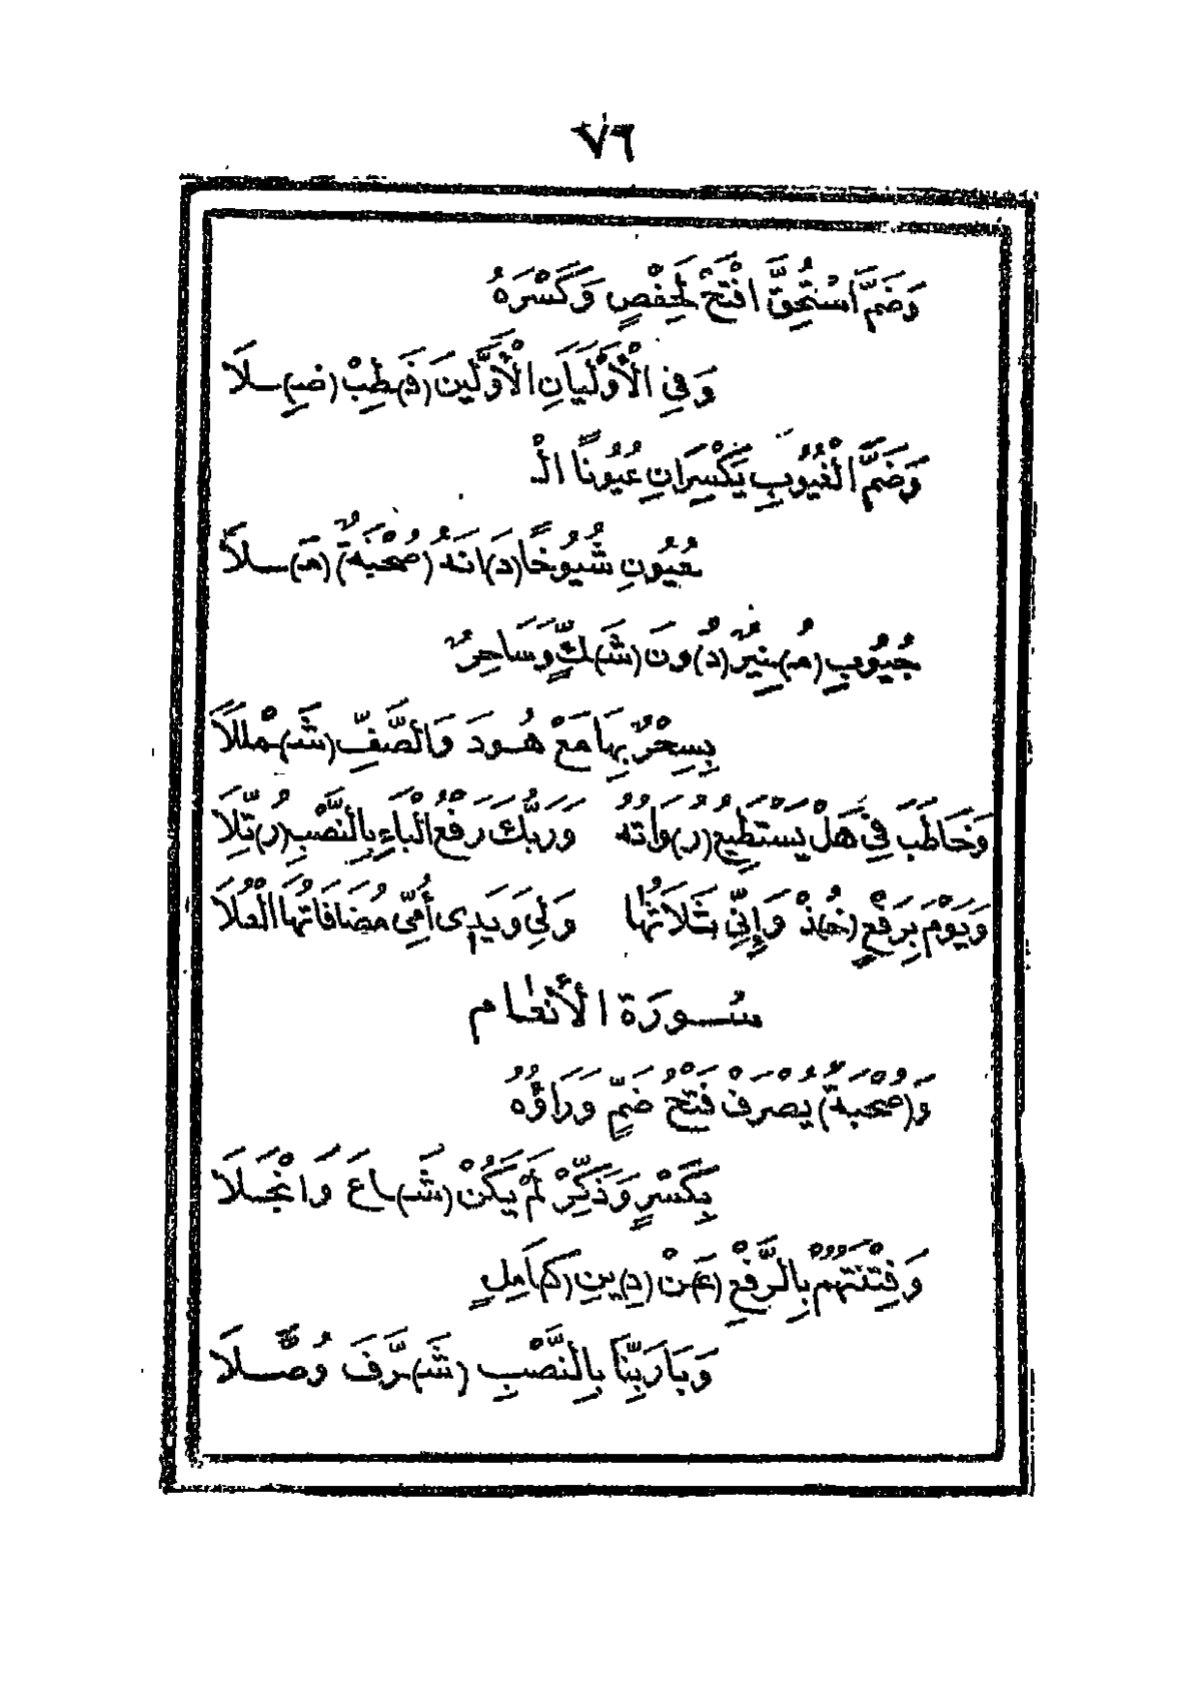 ٧٦
وَضَمَّ اسْتُحِقَّ افْتَحْ لِحَفْصٍ وَكَسْرَهُ
وَفِي الْأَوْلَيَانِ الْأَوَّلِينَ (فَـ)ـطِبْ (صِـ)ـلَا
وَضَمَّ الْغُيُوبِ يَكْسِرَانِ عُيُونًا الْـ
ـعُيُونِ شُيُوخًا (د)َانَهُ (صُحْبَةٌ) (مِـ)ـلَا
جُيُوبِ (مُـ)ـنِيرٌ (دُ)ونَ (شَـ)ـكٍّ وَسَاحِرٌ
بِسِحْرٌ بِهَا مَعْ هُودَ وَالصَّفِّ (شَـ)ـمْلَلَا
وَخَاطَبَ فِي هَلْ يَسْتَطِيعُ (رُ)وَاتُهُ وَرَبُّكَ رَفْعُ الْبَاءِ بِالنَّصْبِ (رُ)تِّلَا
وَيَوْمَ بِرَفْعٍ (خُـ)ـذْ وَإِنِّي ثَلَاثُهَا وَلِي وَيَدِي أُمِّي مُضَافَاتُهَا الْعُلَا
سُورَة الْأَنْعَام
وَ(صُحْبَةٌ) يُصْرَفْ فَتْحُ ضَمٍّ وَرَاؤُهُ
بِكَسْرٍ وَذَكِّرْ لَمْ يَكُنْ (شَـ)ـاعَ وَانْجَلَا
وَفِتْنَتُهُمْ بِالرَّفْعِ (عَـ)ـنْ (دِ)ينِ (كَـ)ـامِلٍ
وَبَا رَبِّنَا بِالنَّصْبِ (شَـ)ـرَّفَ وُصَّلَا